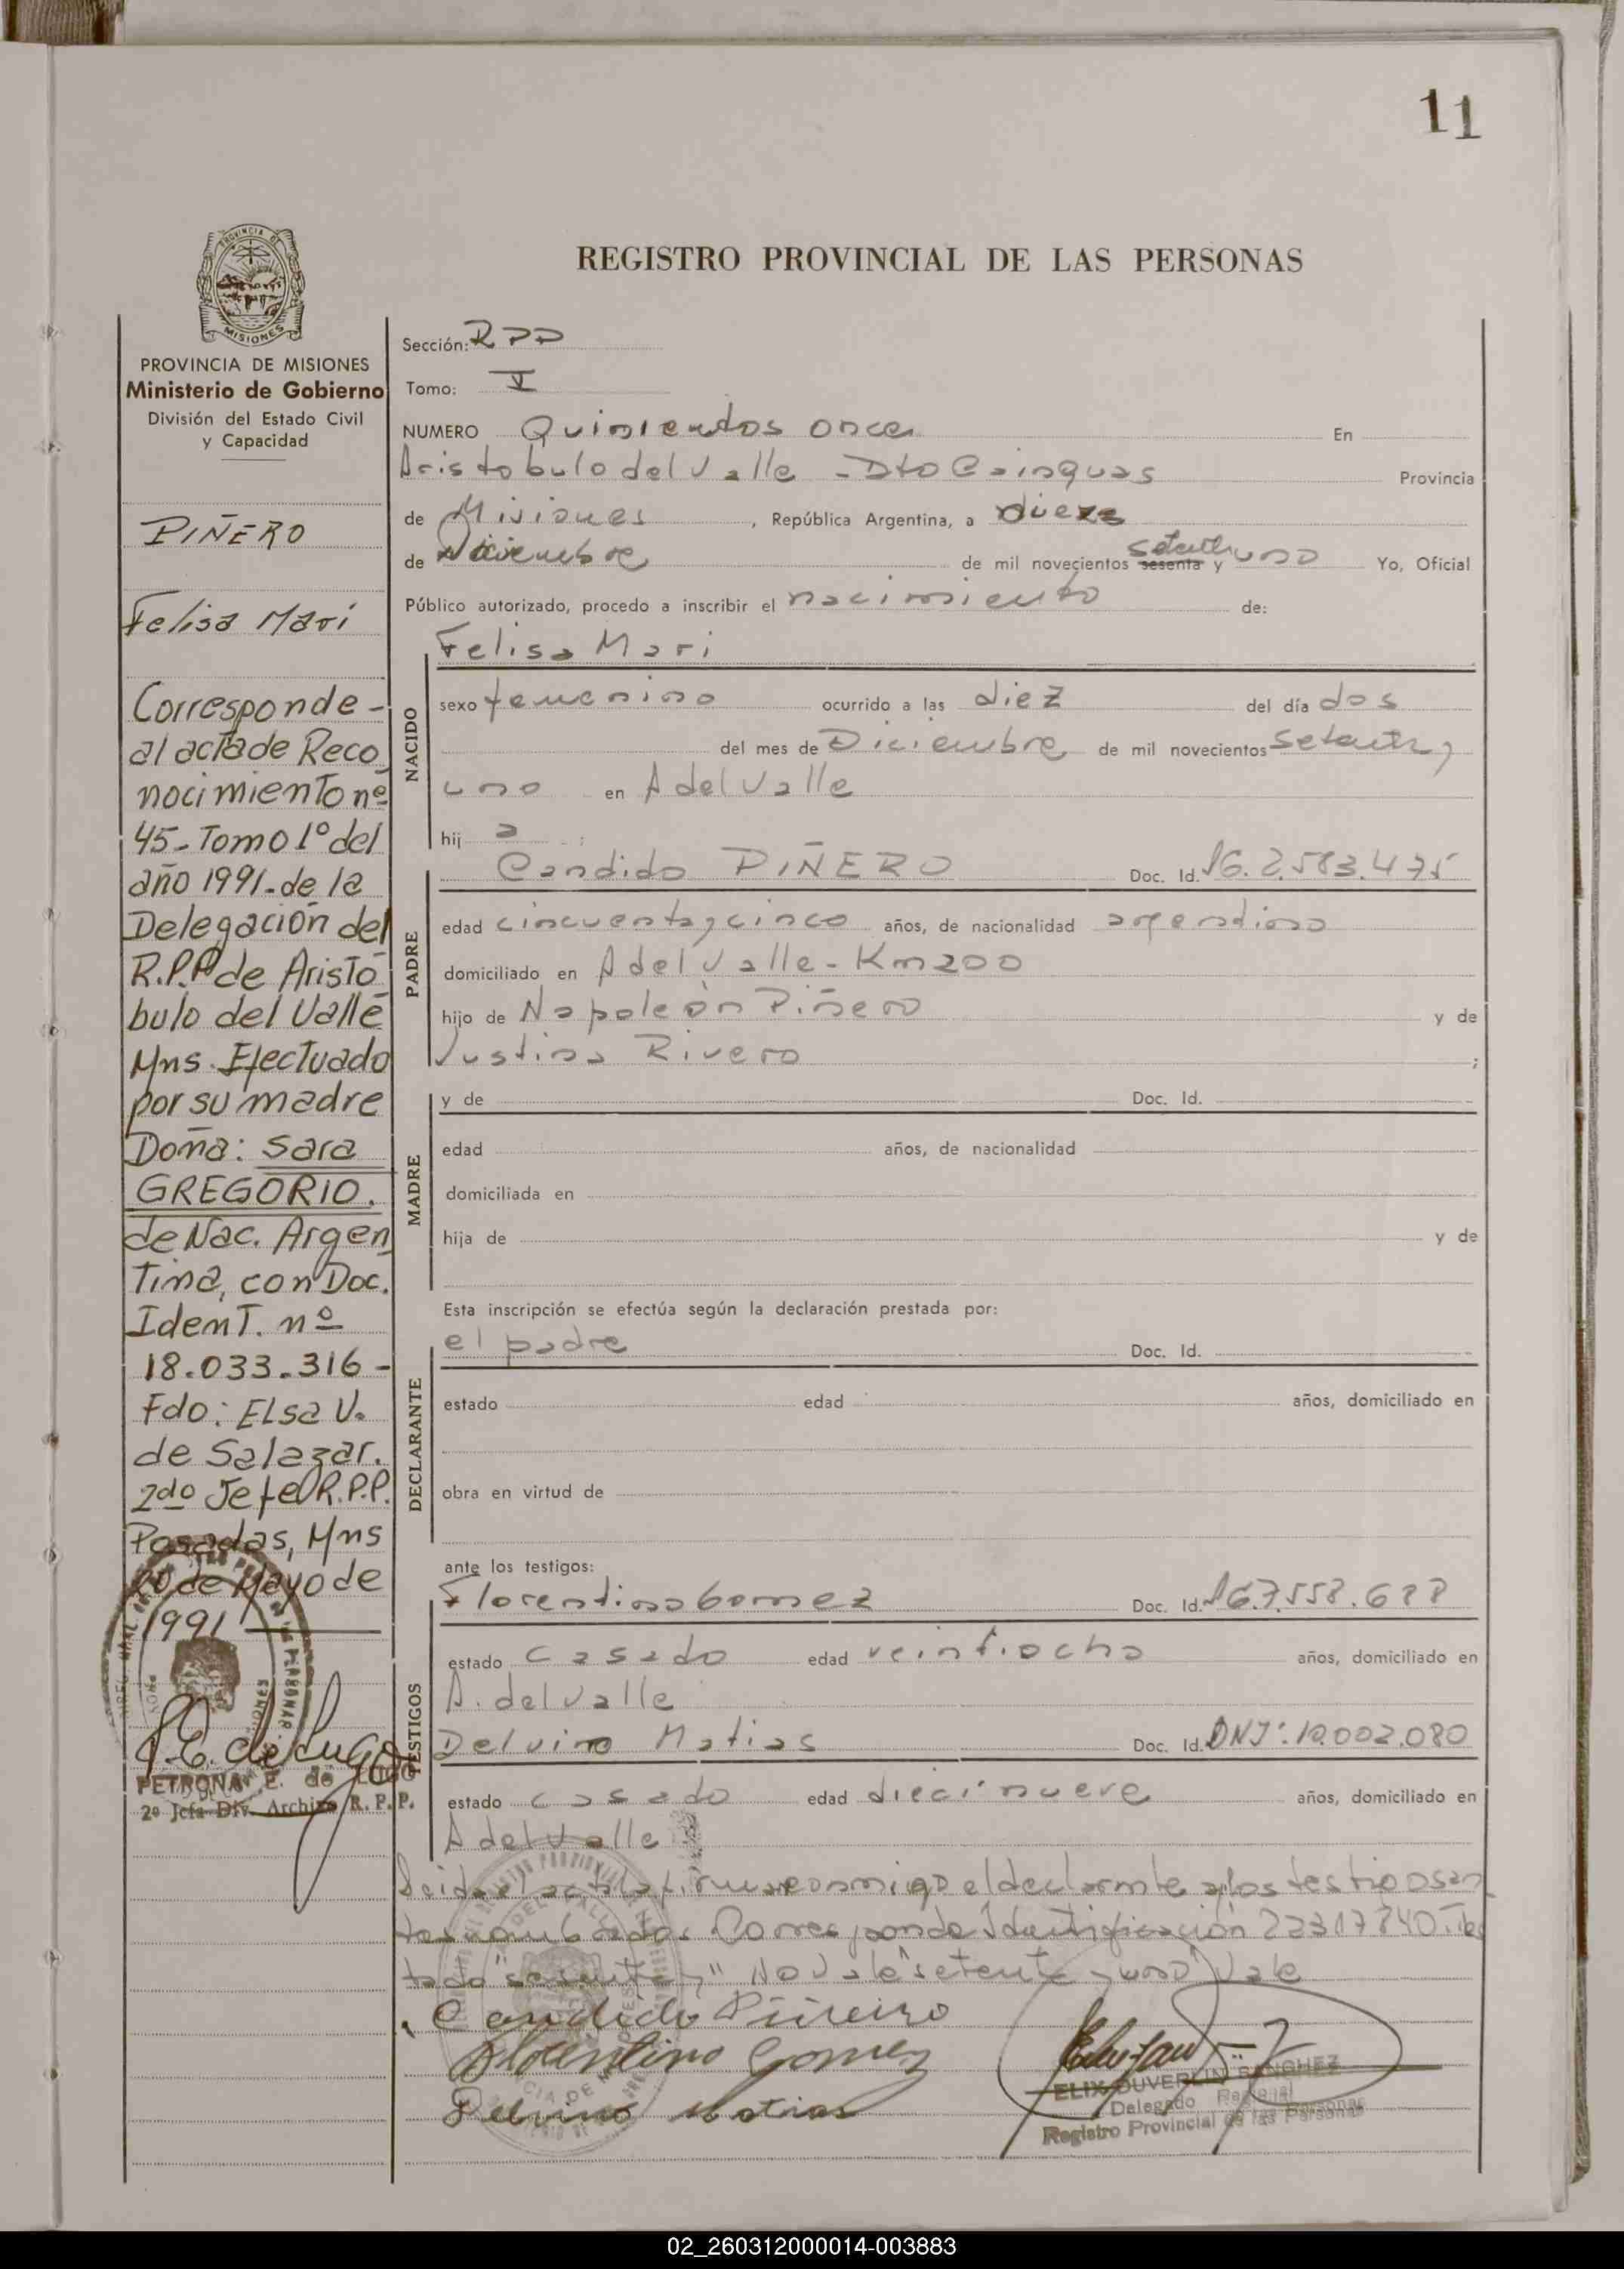 11
REGISTRO PROVINCIAL DE LAS PERSONAS
PROVINCIA DE MISIONES
Ministerio de Gobierno
División del Estado Civil
y Capacidad
PIÑERO
Felisa Mari
Corresponde-
al acta de Reco
nocimiento nº
45-Tomo 1º del
año 1991-de la
Delegación del
R.P.P de Aristó
bulo del Valle
Mns. Efectuado
por su madre
Doña: Sara
GREGORIO.
de Nac. Argen
tina, con Doc.
Ident. nº
18.033.316-
Fdo: Elsa V.
de Salazar.
2do Jefe R.P.P.
Posadas, Mns
20 de Mayo de
1991
PETRONA E. de LUGO
2º Jefa Div. Archivo R.P.P.
Sección: RPP
Tomo: V
NUMERO Quinientos once En
Aristobulo del Valle - Dto Cainguas Provincia
de Misiones, República Argentina, a
de Diciembre de mil novecientos sesenta y setenta uno Yo, Oficial
Público autorizado, procedo a inscribir el nacimiento de:
NACIDO
Felisa Mari
sexo femenino ocurrido a las diez del día dos
del mes de Diciembre de mil novecientos setenta y
uno en A del Valle
hij a :
PADRE
Candido PIÑERO Doc. Id. 2.583.475
edad cincuenta y cinco años, de nacionalidad argentino
domiciliado en A del Valle - Km 200
hijo de Napoleòn Piñero y de
Justina Rivero ;
MADRE
y de Doc. Id.
edad años, de nacionalidad
domiciliada en
hija de y de
Esta inscripción se efectúa según la declaración prestada por:
DECLARANTE
el padre Doc. Id.
estado edad años, domiciliado en
obra en virtud de
ante los testigos:
TESTIGOS
Florentino Gomez Doc. Id.
estado casado edad veintiocho años, domiciliado en
A. del Valle
Delvino Matias Doc. Id. DNI: 10.002.080
estado casado edad diecinueve años, domiciliado en
A del Valle
Leida el acta la firma conmigo el declarante y los testigos an
tes nombrados Corresponde Identificación 22317840. Tes
tado "sesenta y" No Vale "setenta y uno" Vale
Candido Piñeiro
Florentino Gomez
Delvino Matias
ELIX DUVERLIN SANCHEZ
Delegado Regional
Registro Provincial de las Personas
02_260312000014-003883